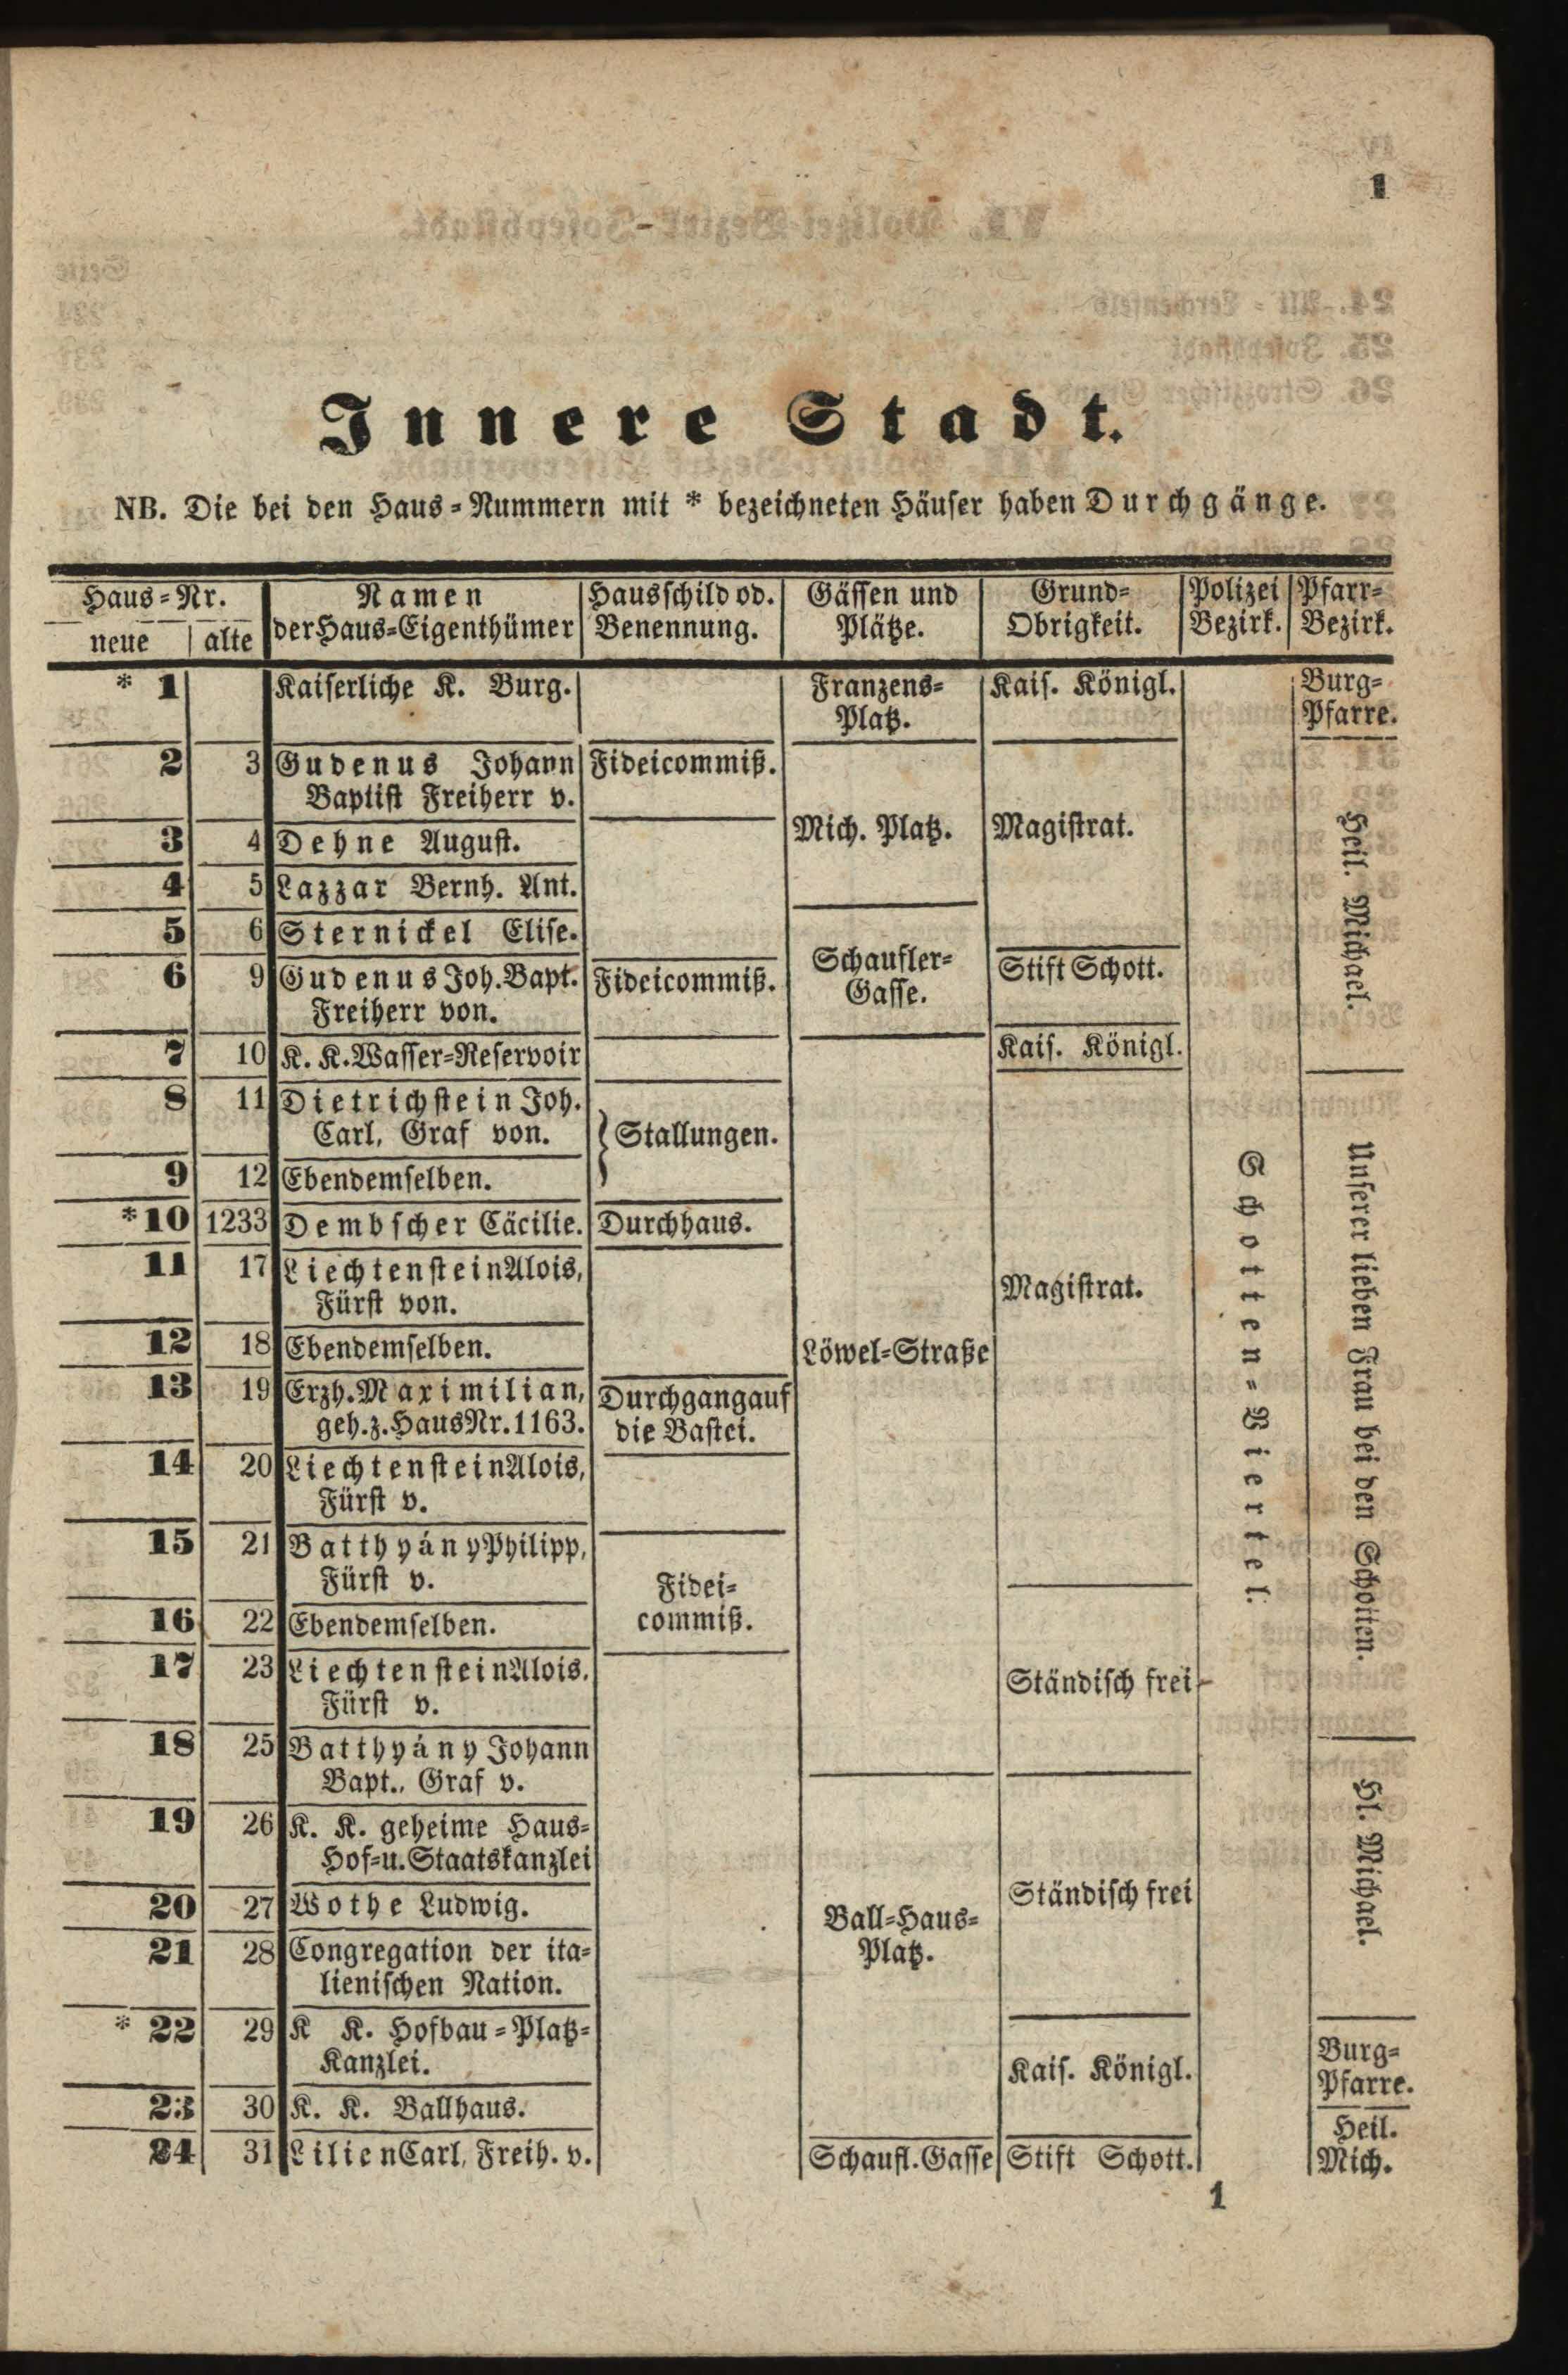 1
Innere Stadt.
NB. Die bei den Haus-Nummern mit * bezeichneten Häuser haben Durchgänge.
Haus-Nr. | Namen | Hausschild od. | Gässen und | Grund- | Polizei | Pfarr-
neue | alte | der Haus-Eigenthümer | Benennung. | Plätze. | Obrigkeit. | Bezirk. | Bezirk.
* 1 Kaiserliche K. Burg. Franzens- Kais. Königl. Burg-
Platz. Pfarre.
2 3 Gudenus Johann Fideicommiß.
Baptist Freiherr v.
3 4 Dehne August. Mich. Platz. Magistrat.
4 5 Lazzar Bernh. Ant.
5 6 Sternickel Elise.
Schaufler-
6 9 Gudenus Joh. Bapt. Fideicommiß. Gasse. Stift Schott.
Freiherr von.
Heil. Michael.
7 10 K. K. Wasser-Reservoir Kais. Königl.
8 11 Dietrichstein Joh.
Carl, Graf von. Stallungen.
9 12 Ebendemselben.
*10 1233 Dembscher Cäcilie. Durchhaus.
11 17 Liechtenstein Alois, Magistrat.
Fürst von.
12 18 Ebendemselben. Löwel-Straße
13 19 Erzh. Maximilian, Durchgang auf
geh. z. Haus Nr. 1163. die Bastei.
Schotten-Viertel.
Unserer lieben Frau bei den Schotten.
14 20 Liechtenstein Alois,
Fürst v.
15 21 Batthyány Philipp,
Fürst v. Fidei-
16 22 Ebendemselben. commiß.
17 23 Liechtenstein Alois, Ständisch frei
Fürst v.
18 25 Batthyány Johann
Bapt., Graf v.
19 26 K. K. geheime Haus-
Hof-u. Staatskanzlei
Hl. Michael.
20 27 Wothe Ludwig. Ball-Haus- Ständisch frei
21 28 Congregation der ita- Platz.
lienischen Nation.
* 22 29 K K. Hofbau-Platz- Burg-
Kanzlei. Kais. Königl. Pfarre.
23 30 K. K. Ballhaus. Heil.
24 31 Lilien Carl, Freih. v. Schaufl. Gasse Stift Schott. Mich.
1